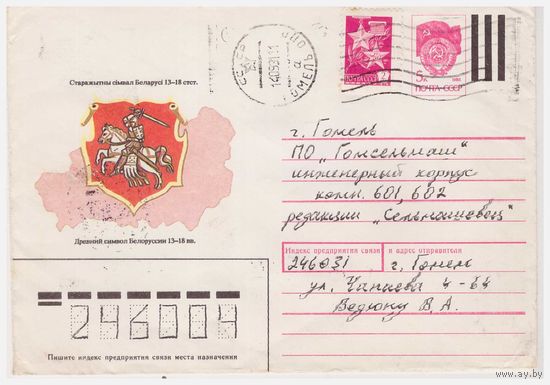 Старажытны сімвал Беларусі 13–18 стст.
Древний символ Белоруссии 13–18 вв.
СССР
ГОМЕЛЬ
5к
ПОЧТА СССР
г. Гомель
ПО „Гомсельмаш“
инженерный корпус
комн. 601, 602
редакции „Сельмашевец“
Индекс предприятия связи и адрес отправителя
246031 г. Гомель
ул. Чапаева 4-64
Ведюку В. А.
246004
Пишите индекс предприятия связи места назначения
www.ay.by